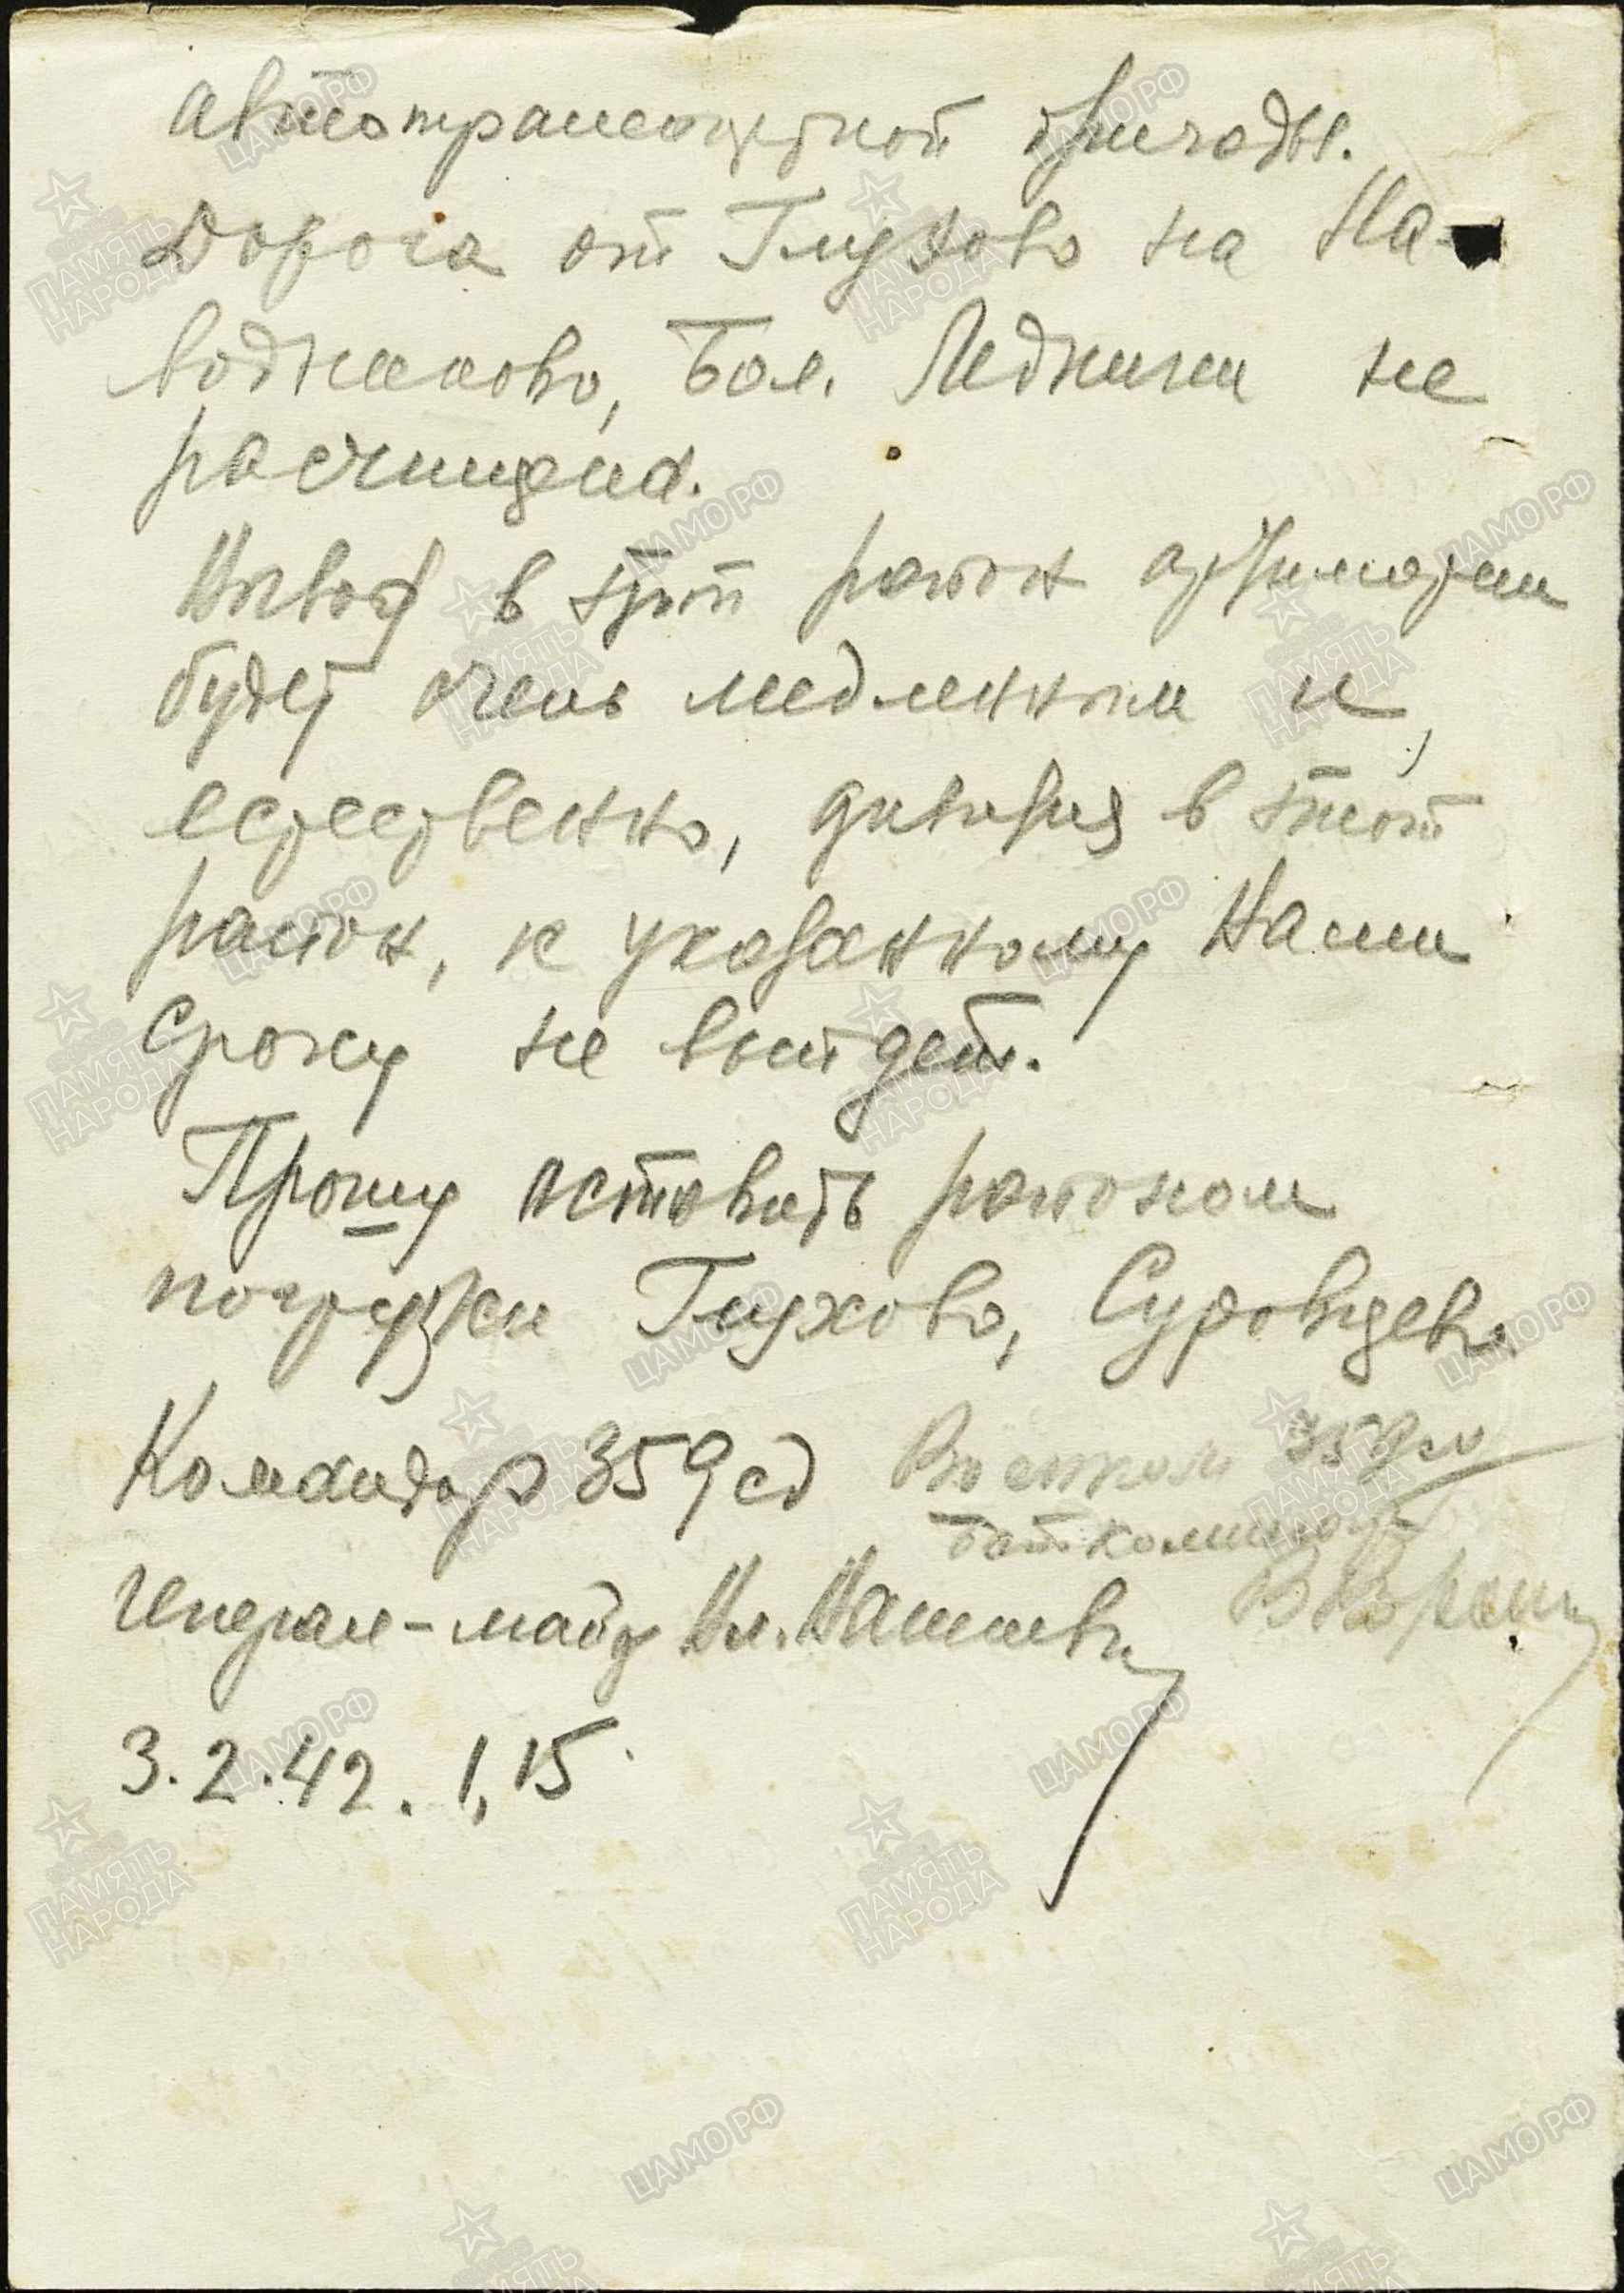 автотранспортной бригады.
Дорога от Глухово на На-
водниково, Бол. Ледники не
расчищена.
Вывоз в этот район артиллерии
будет очень медленным и,
естественно, дивизия в этот
район, к указанному Вами
сроку не выйдет.
Прошу оставить районом
погрузки Глухово, Суровцево.
Командир 359 сд Военком 359 сд
бат. комиссар
генерал-майор
3.2.42. 1,15